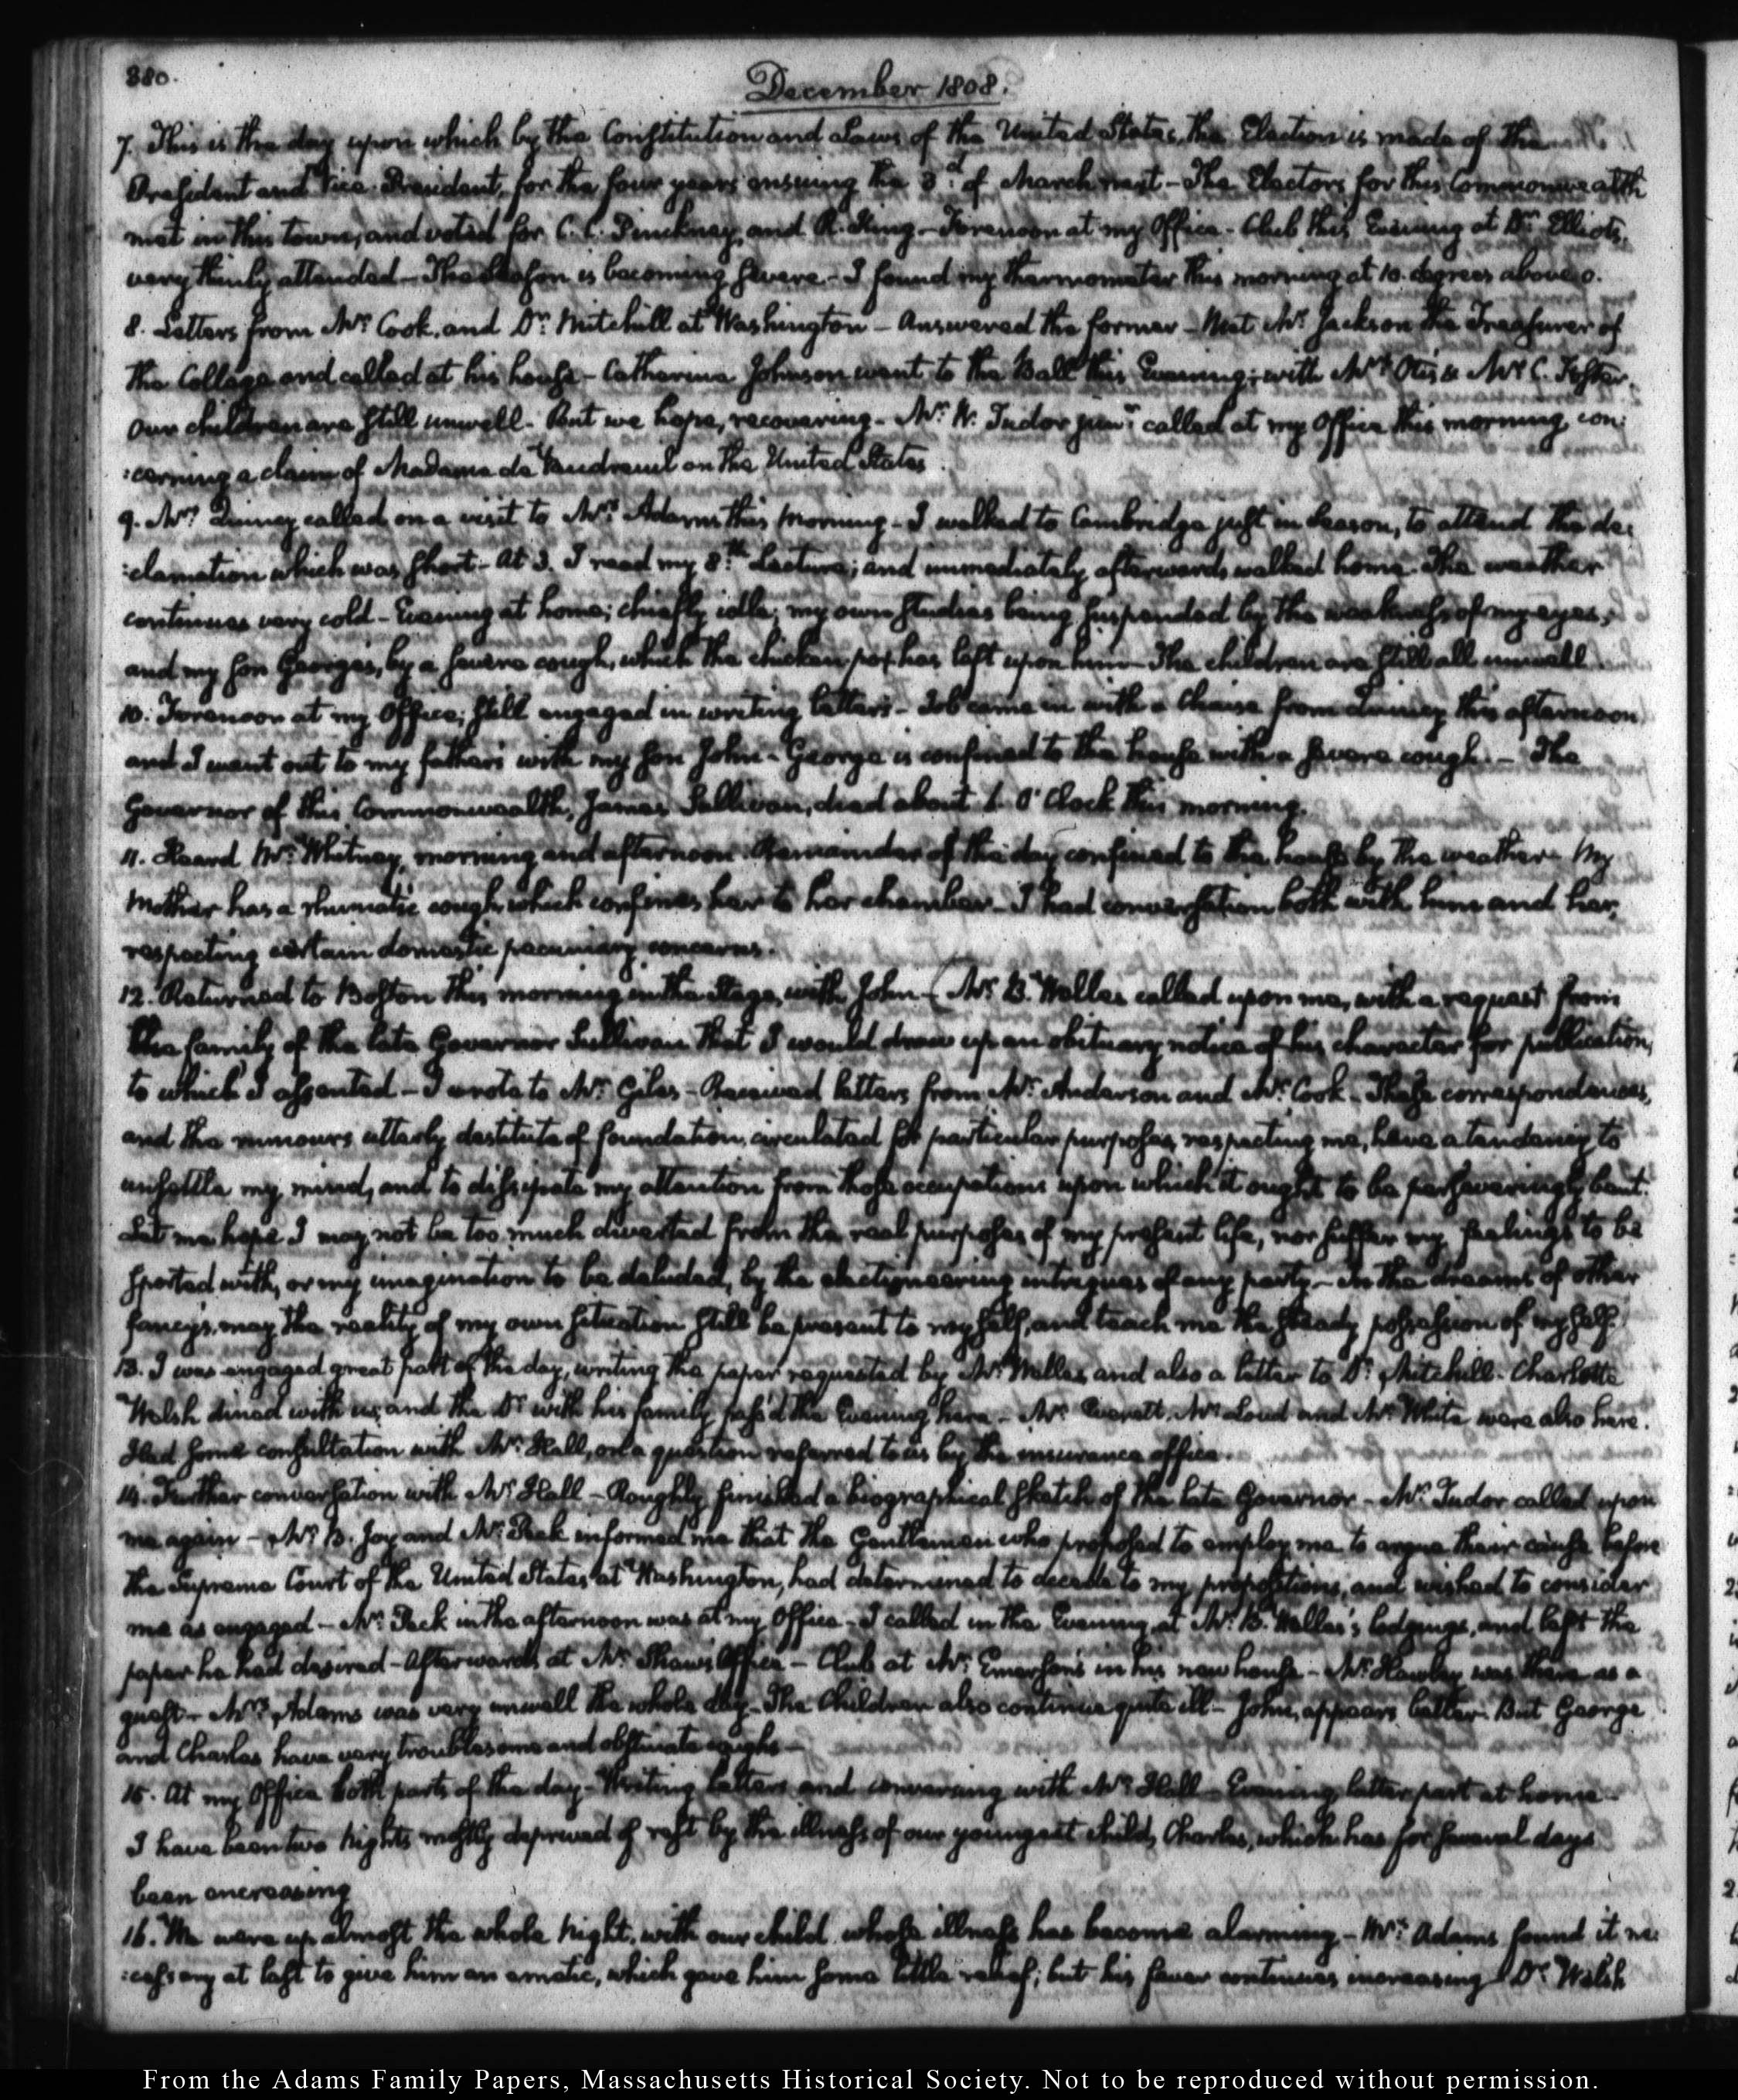 380.
December 1808.
7. This is the day upon which by the Constitution and Laws of the United States, the Election is made of the
President and Vice-President, for the four years ensuing the 3.d of March next - The Electors for this Commonwealth
met in this town, and voted for C. C. Pinckney, and R. King - Forenoon at my Office - Club this Evening at Dr. Elliot's,
very thinly attended - The season is becoming severe - I found my thermometer this morning at 10. degrees above 0.
8. Letters from Mr. Cook, and Dr. Mitchill at Washington - Answered the former - Met Mr. Jackson the Treasurer of
the College and called at his house - Catharine Johnson went to the Ball this Evening; with Mrs. Otis & Mr. C. Foster.
Our children are still unwell - But we hope, recovering - Mr. W. Tudor junr. called at my Office this morning, con:
:cerning a claim of Madame de Vaudreuil on the United States.
9. Mrs. Quincy called on a visit to Mrs. Adams this morning - I walked to Cambridge just in season, to attend the de:
:clamation which was short - At 3. I read my 8.th Lecture; and immediately afterwards walked home. The weather
continues very cold - Evening at home; chiefly idle; my own studies being suspended by the weakness of my eyes,
and my son George's, by a severe cough, which the chicken pox has left upon him - The children are still all unwell.
10. Forenoon at my Office; still engaged in writing letters - Job came in with a Chaise from Quincy this afternoon
and I went out to my father's with my son John - George is confined to the house with a severe cough. - The
Governor of this Commonwealth, James Sullivan, died about 1. O'Clock this morning.
11. Heard Mr. Whitney, morning and afternoon. Remainder of the day confined to the house by the weather - My
Mother has a rhumatic cough which confines her to her chamber - I had conversation both with him and her,
respecting certain domestic pecuniary concerns.
12. Returned to Boston this morning in the Stage, with John - (Mr. B. Welles called upon me, with a request from
the family of the late Governor Sullivan that I would draw up an obituary notice of his character for publication,
to which I assented - I wrote to Mr. Giles - Received letters from Mr. Anderson and Mr. Cook - These correspondences,
and the rumours utterly destitute of foundation, circulated for particular purposes, respecting me, have a tendency to
unsettle my mind, and to dissipate my attention from those occupations upon which it ought to be perseveringly bent.
Let me hope I may not be too much diverted from the real purposes of my present life, nor suffer my feelings to be
sported with, or my imagination to be deluded, by the electioneering intrigues of any party - In the dreams of other
fancy's, may the reality of my own situation still be present to myself, and teach me the steady possession of myself.
13. I was engaged great part of the day, writing the paper requested by Mr. Welles, and also a letter to Dr. Mitchill - Charlotte
Welsh dined with us, and the Dr. with his family pass'd the Evening here - Mr. Everett, Mr. Loud and Mr. White were also here.
Had some consultation with Mr. Hall, on a question referred to us by the insurance office.
14. Further conversation with Mr. Hall - Roughly finished a biographical sketch of the late Governor - Mr. Tudor called upon
me again - Mr. B. Joy and Mr. Peck informed me that the Gentlemen who proposed to employ me to argue their cause before
the Supreme Court of the United States at Washington, had determined to accede to my propositions, and wished to consider
me as engaged - Mr. Peck in the afternoon was at my Office - I called in the Evening at Mr. B. Welles's lodgings, and left the
paper he had desired - Afterwards at Mr. Shaw's Office - Club at Mr. Emerson's in his new house - Mr. Hawley was there as a
guest - Mrs. Adams was very unwell the whole day - The Children also continue quite ill - John, appears better - But George
and Charles have very troublesome and obstinate coughs -
15. At my Office both parts of the day - Writing letters and conversing with Mr. Hall - Evening latter part at home -
I have been two Nights mostly deprived of rest by the illness of our youngest child, Charles, which has for several days
been encreasing
16. We were up almost the whole Night, with our child whose illness has become alarming - Mrs. Adams found it ne:
:cessary at last to give him an emetic, which gave him some little relief; but his fever continues increasing. Dr. Welsh
From the Adams Family Papers, Massachusetts Historical Society. Not to be reproduced without permission.